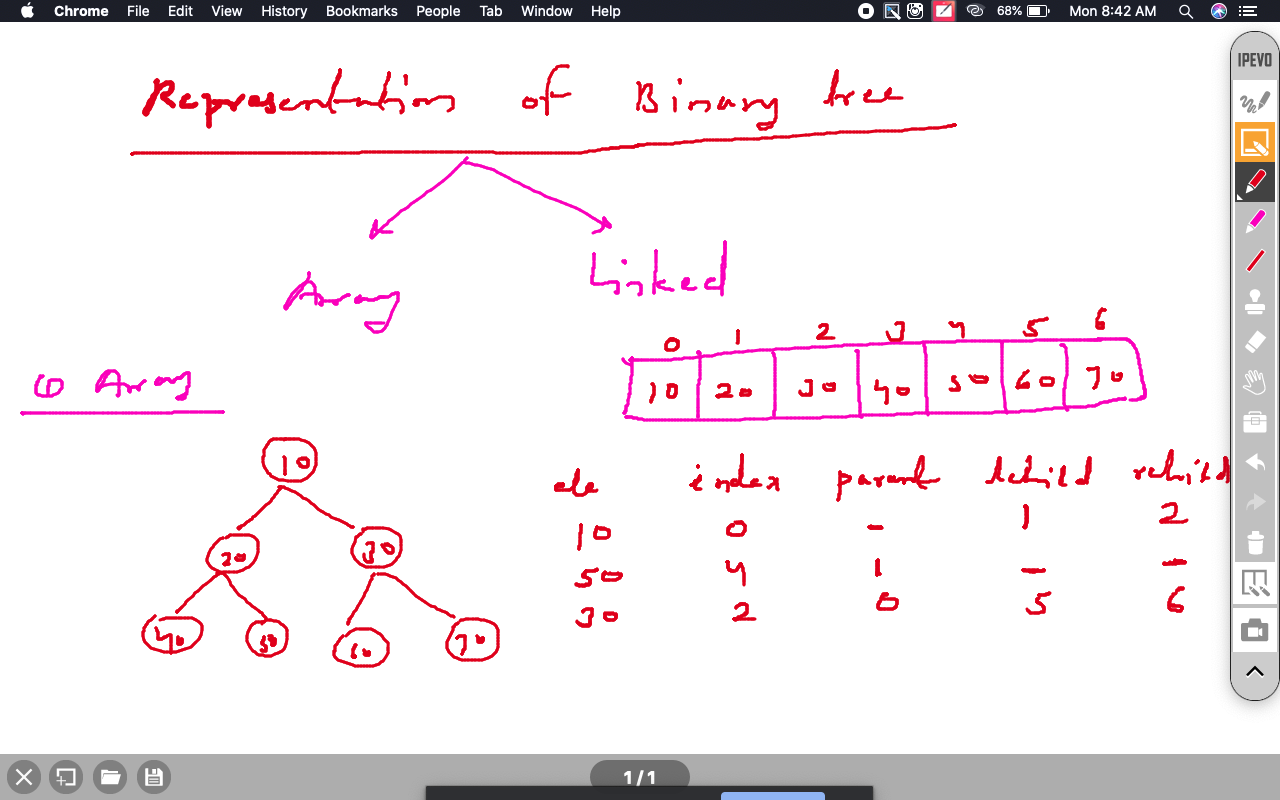 Chrome File Edit View History Bookmarks People Tab Window Help 68% Mon 8:42 AM
IPEVO
Representation of Binary tree
Array Linked
0 1 2 3 4 5 6
10 20 30 40 50 60 70
① Array
10
20 30
40 50 60 70
ele index parent lchild rchild
10 0 - 1 2
50 4 1 - -
30 2 0 5 6
1/1